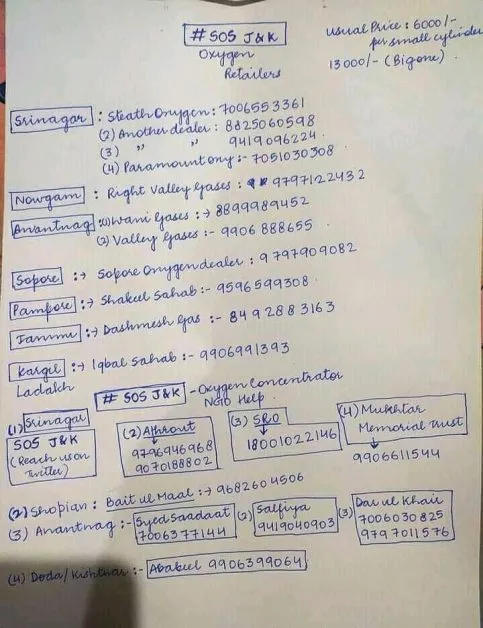 # SOS J&K
Oxygen
Retailers
Usual Price : 6000/-
per small cylinder
13000/- (Big one)
Srinagar : Steath Oxygen : 7006553361
(2) Another dealer : 8825060598
(3) " " 9419096224
(4) Paramount oxy :- 7051030308
Nowgam : Right Valley Gases : 9797122432
Anantnag :(1) Wani Gases :-> 8899989452
(2) Valley Gases :- 9906888655
Sopore :-> Sopore Oxygen dealer : 9797909082
Pampore :-> Shakeel Sahab :- 9596599308
Jammu :-> Dashmesh Gas :- 8492883163
Kargil :-> Iqbal Sahab :- 9906991393
Ladakh
# SOS J&K - Oxygen Concentrator
NGO Help
(1) Srinagar
SOS J&K
(Reach us on
Twitter)
(2) Athrout
9796946968
9070188802
(3) SRO
18001022146
(4) Mukhtar
Memorial Trust
9906611544
(2) Shopian : Bait ul Maal :-> 9682604506
(3) Anantnag :- Syed Saadaat
7006377144
(2) Salfiya
9419040903
(3) Dar ul Khair
7006030825
9797011576
(4) Doda/Kishtwar :- Ababeel 9906399064